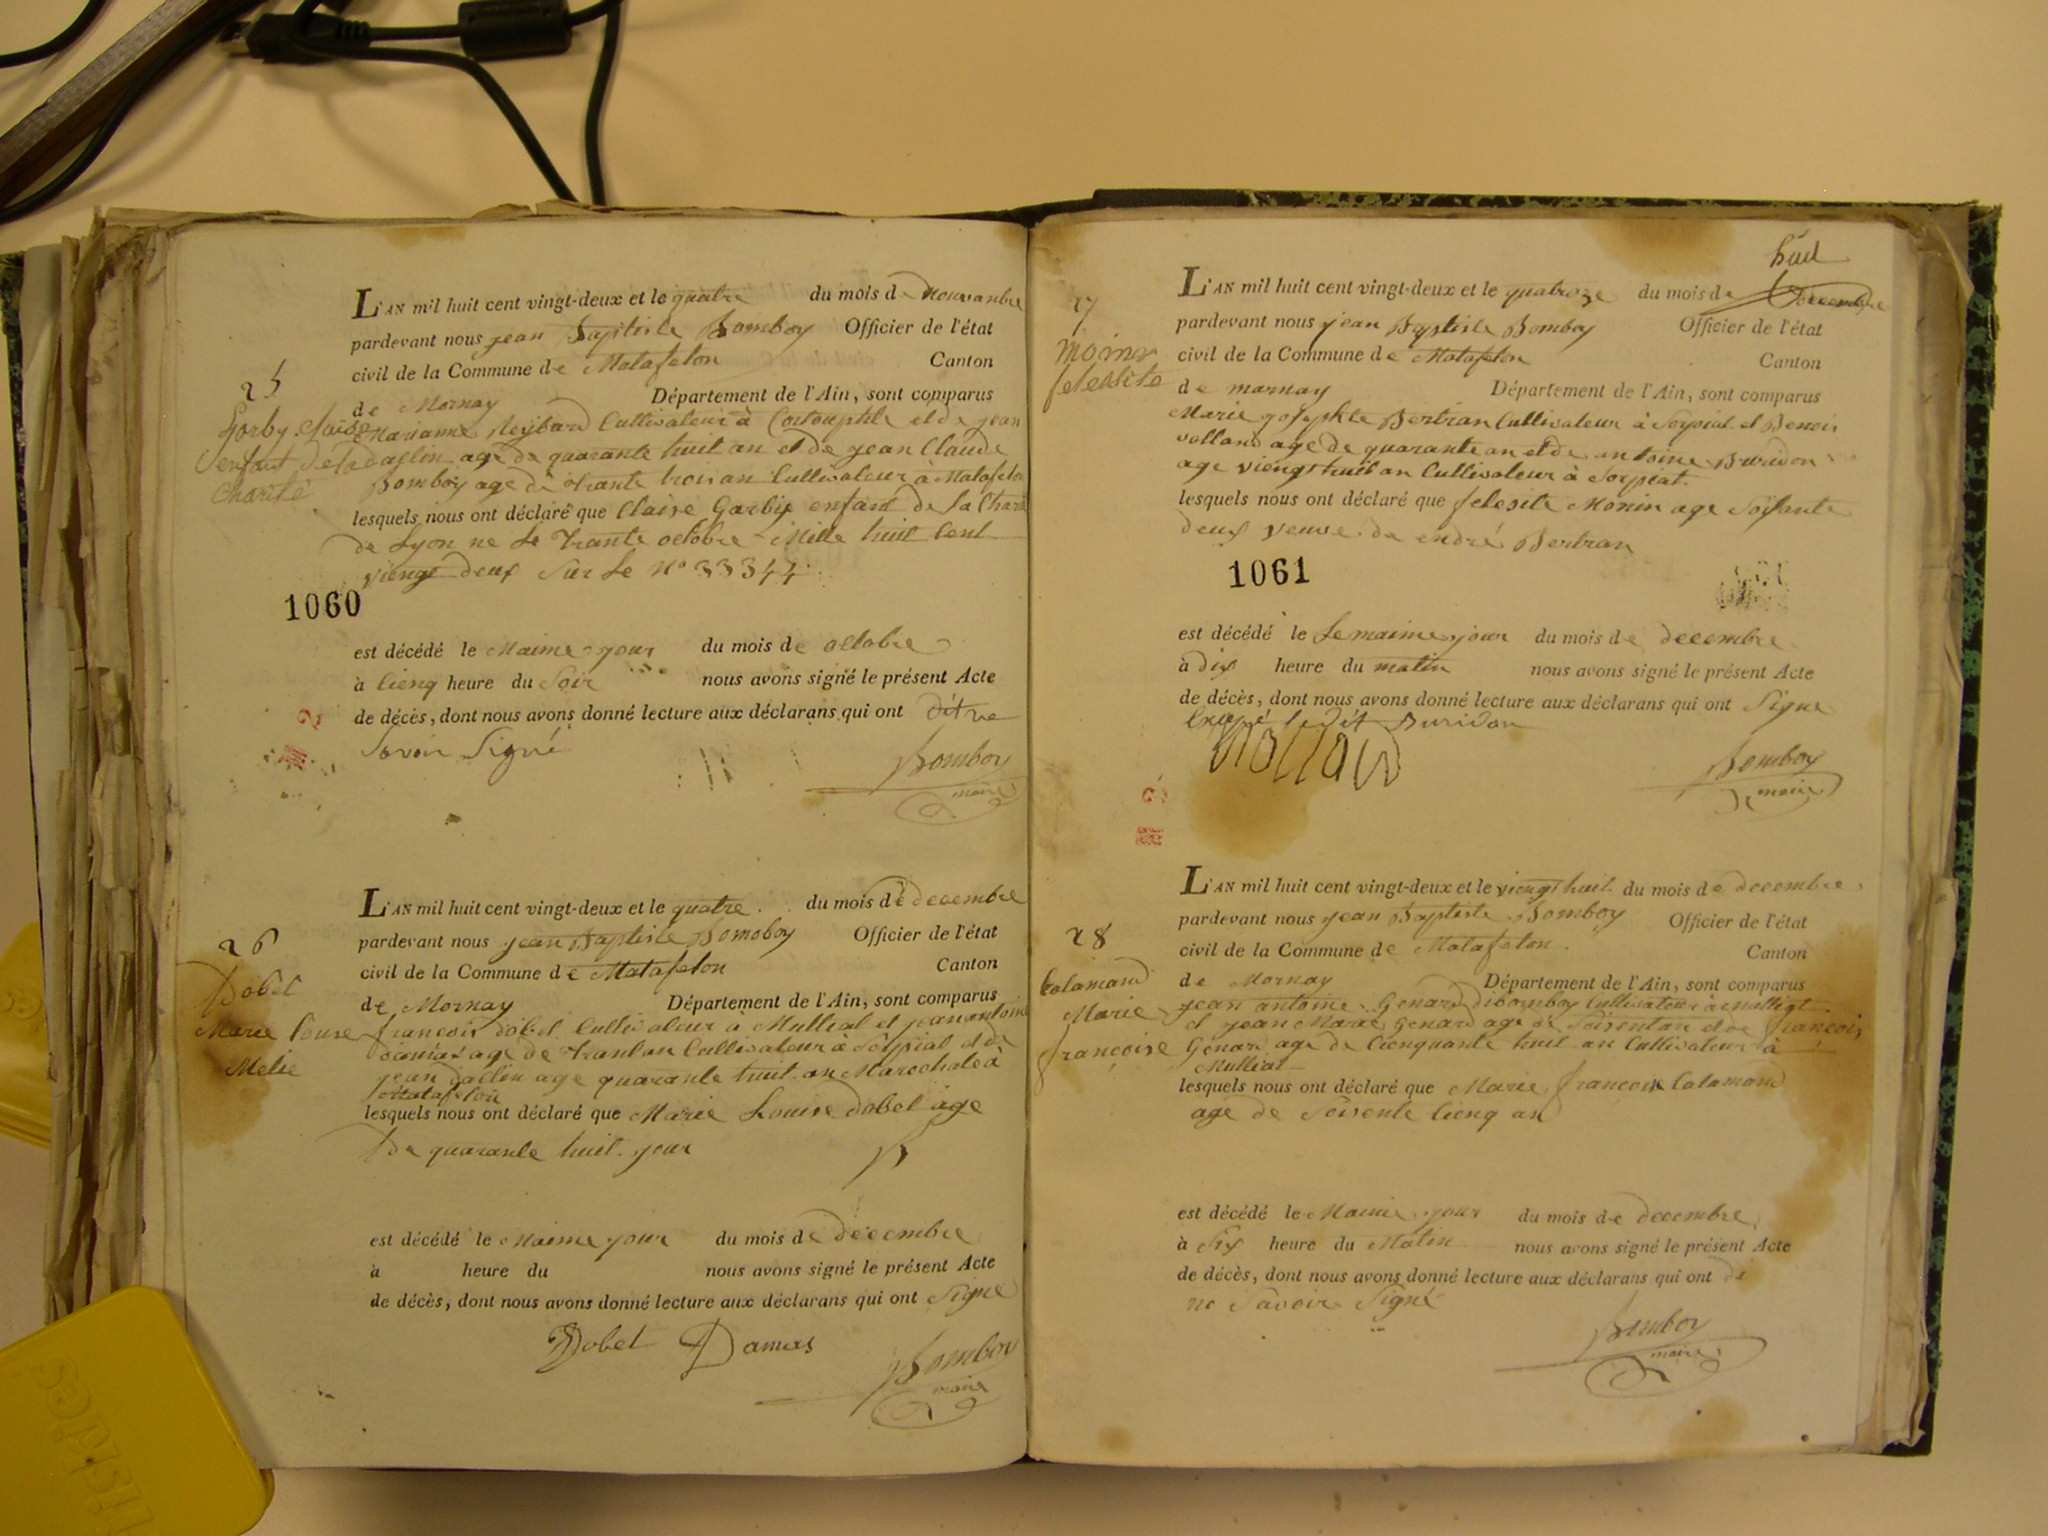 25
Gorby Claise
enfant de la
Charité
L'AN mil huit cent vingt-deux et le quatre du mois de Nouvanbre
pardevant nous jean Baptiste Bomboy Officier de l'état
civil de la Commune de Matafelon Canton
de Mornay Département de l'Ain, sont comparus
Marianne Reybard Cultivateur à et de jean
age de quarante huit an et de jean Claude
Bomboy age de trante trois an Cultivateur à Matafelon
lesquels nous ont déclaré que Claise Gorby enfant de la Charité
de Lyon ne le trante octobre Mille huit Cent
viengt deux sur le N° 33344
1060
est décédé le Maime jour du mois de octobre
à cienq heure du Soir nous avons signé le présent Acte
de décès, dont nous avons donné lecture aux déclarans qui ont dit ne
Savoir Signé
Bomboy
maire
26
Dobet
Marie Louse
Melie
L'AN mil huit cent vingt-deux et le quatre du mois de decembre
pardevant nous jean Baptiste Bomoboy Officier de l'état
civil de la Commune de Matafelon Canton
de Mornay Département de l'Ain, sont comparus
francois dobet Cultivateur a Mulliat et jean antoine
damas age de trantan Cultivateur à Sorpiat et de
jean dallin age quarante huit an Marechale à
Matafelon
lesquels nous ont déclaré que Marie Louise dobet age
de quarante huit jour
est décédé le Maime jour du mois de decembre
à heure du nous avons signé le présent Acte
de décès, dont nous avons donné lecture aux déclarans qui ont Signe
Dobet Damas
Bomboy
maire
27
Moinr
feleasite
huit
L'AN mil huit cent vingt-deux et le quatroze du mois de Decembre
pardevant nous jean Baptiste Bomboy Officier de l'état
civil de la Commune de Matafelon Canton
de marnay Département de l'Ain, sont comparus
Marie Bertran Cultivateur à Sorpiat et Benoir
volland age de quarante an et de antoine Buridon
age viengt huit an Cultivateur à Sorpiat
lesquels nous ont déclaré que felesite Monin age Soisante
deux veuve de endré Bertran
1061
est décédé le Le maime jour du mois de decembre
à dix heure du matin nous avons signé le présent Acte
de décès, dont nous avons donné lecture aux déclarans qui ont Signe
Excepé le dit Buridon
Vollaud
Bomboy
maire
28
Calamand
Marie
françoise
L'AN mil huit cent vingt-deux et le viengt huit du mois de decembre
pardevant nous jean Baptiste Bomboy Officier de l'état
civil de la Commune de Matafelon Canton
de Mornay Département de l'Ain, sont comparus
jean antoine Genard Cultivateur à
et jean Marie Genard age de Soisentan et de francois
Genard age de Cienquante huit an Cultivateur à
Mulliat
lesquels nous ont déclaré que Marie francoise Calamand
age de Soisente Cienq an
est décédé le Maime jour du mois de decembre
à Six heure du Matin nous avons signé le présent Acte
de décès, dont nous avons donné lecture aux déclarans qui ont di
ne Savoir Signé
Bomboy
maire